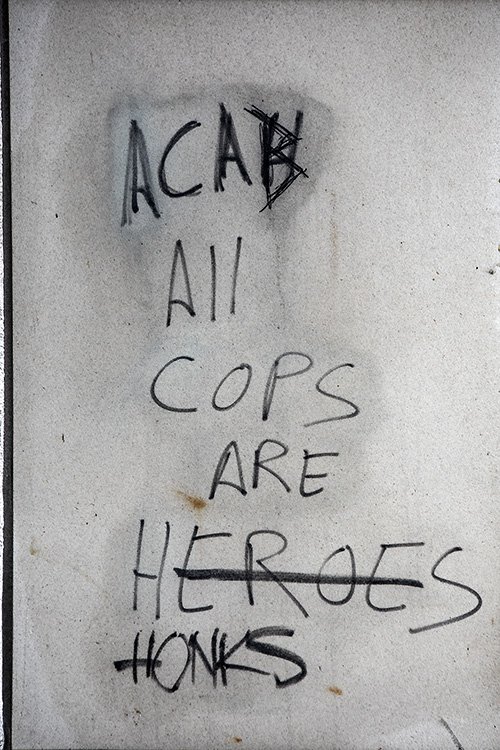 ACAB
All
COPS
ARE
HEROES
HONKS